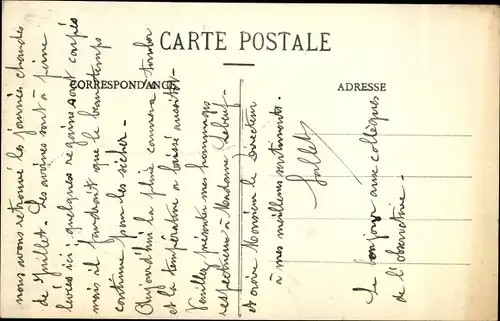 CARTE POSTALE
CORRESPONDANCE
ADRESSE
nous avons retrouvé les journées chaudes
de Juillet. Les avoines sont à peine
levées ici ; quelques regains sont coupés
mais il faudrait que le beau temps
continue pour les sécher.
Aujourd'hui la pluie commence à tomber
et la température a baissé aussitôt.
Veuillez présenter mes hommages
respectueux à Madame Lebeuf
et croire Monsieur le Directeur
à mes meilleurs sentiments.
Sallet
Le bonjour aux collègues
de l'observatoire.